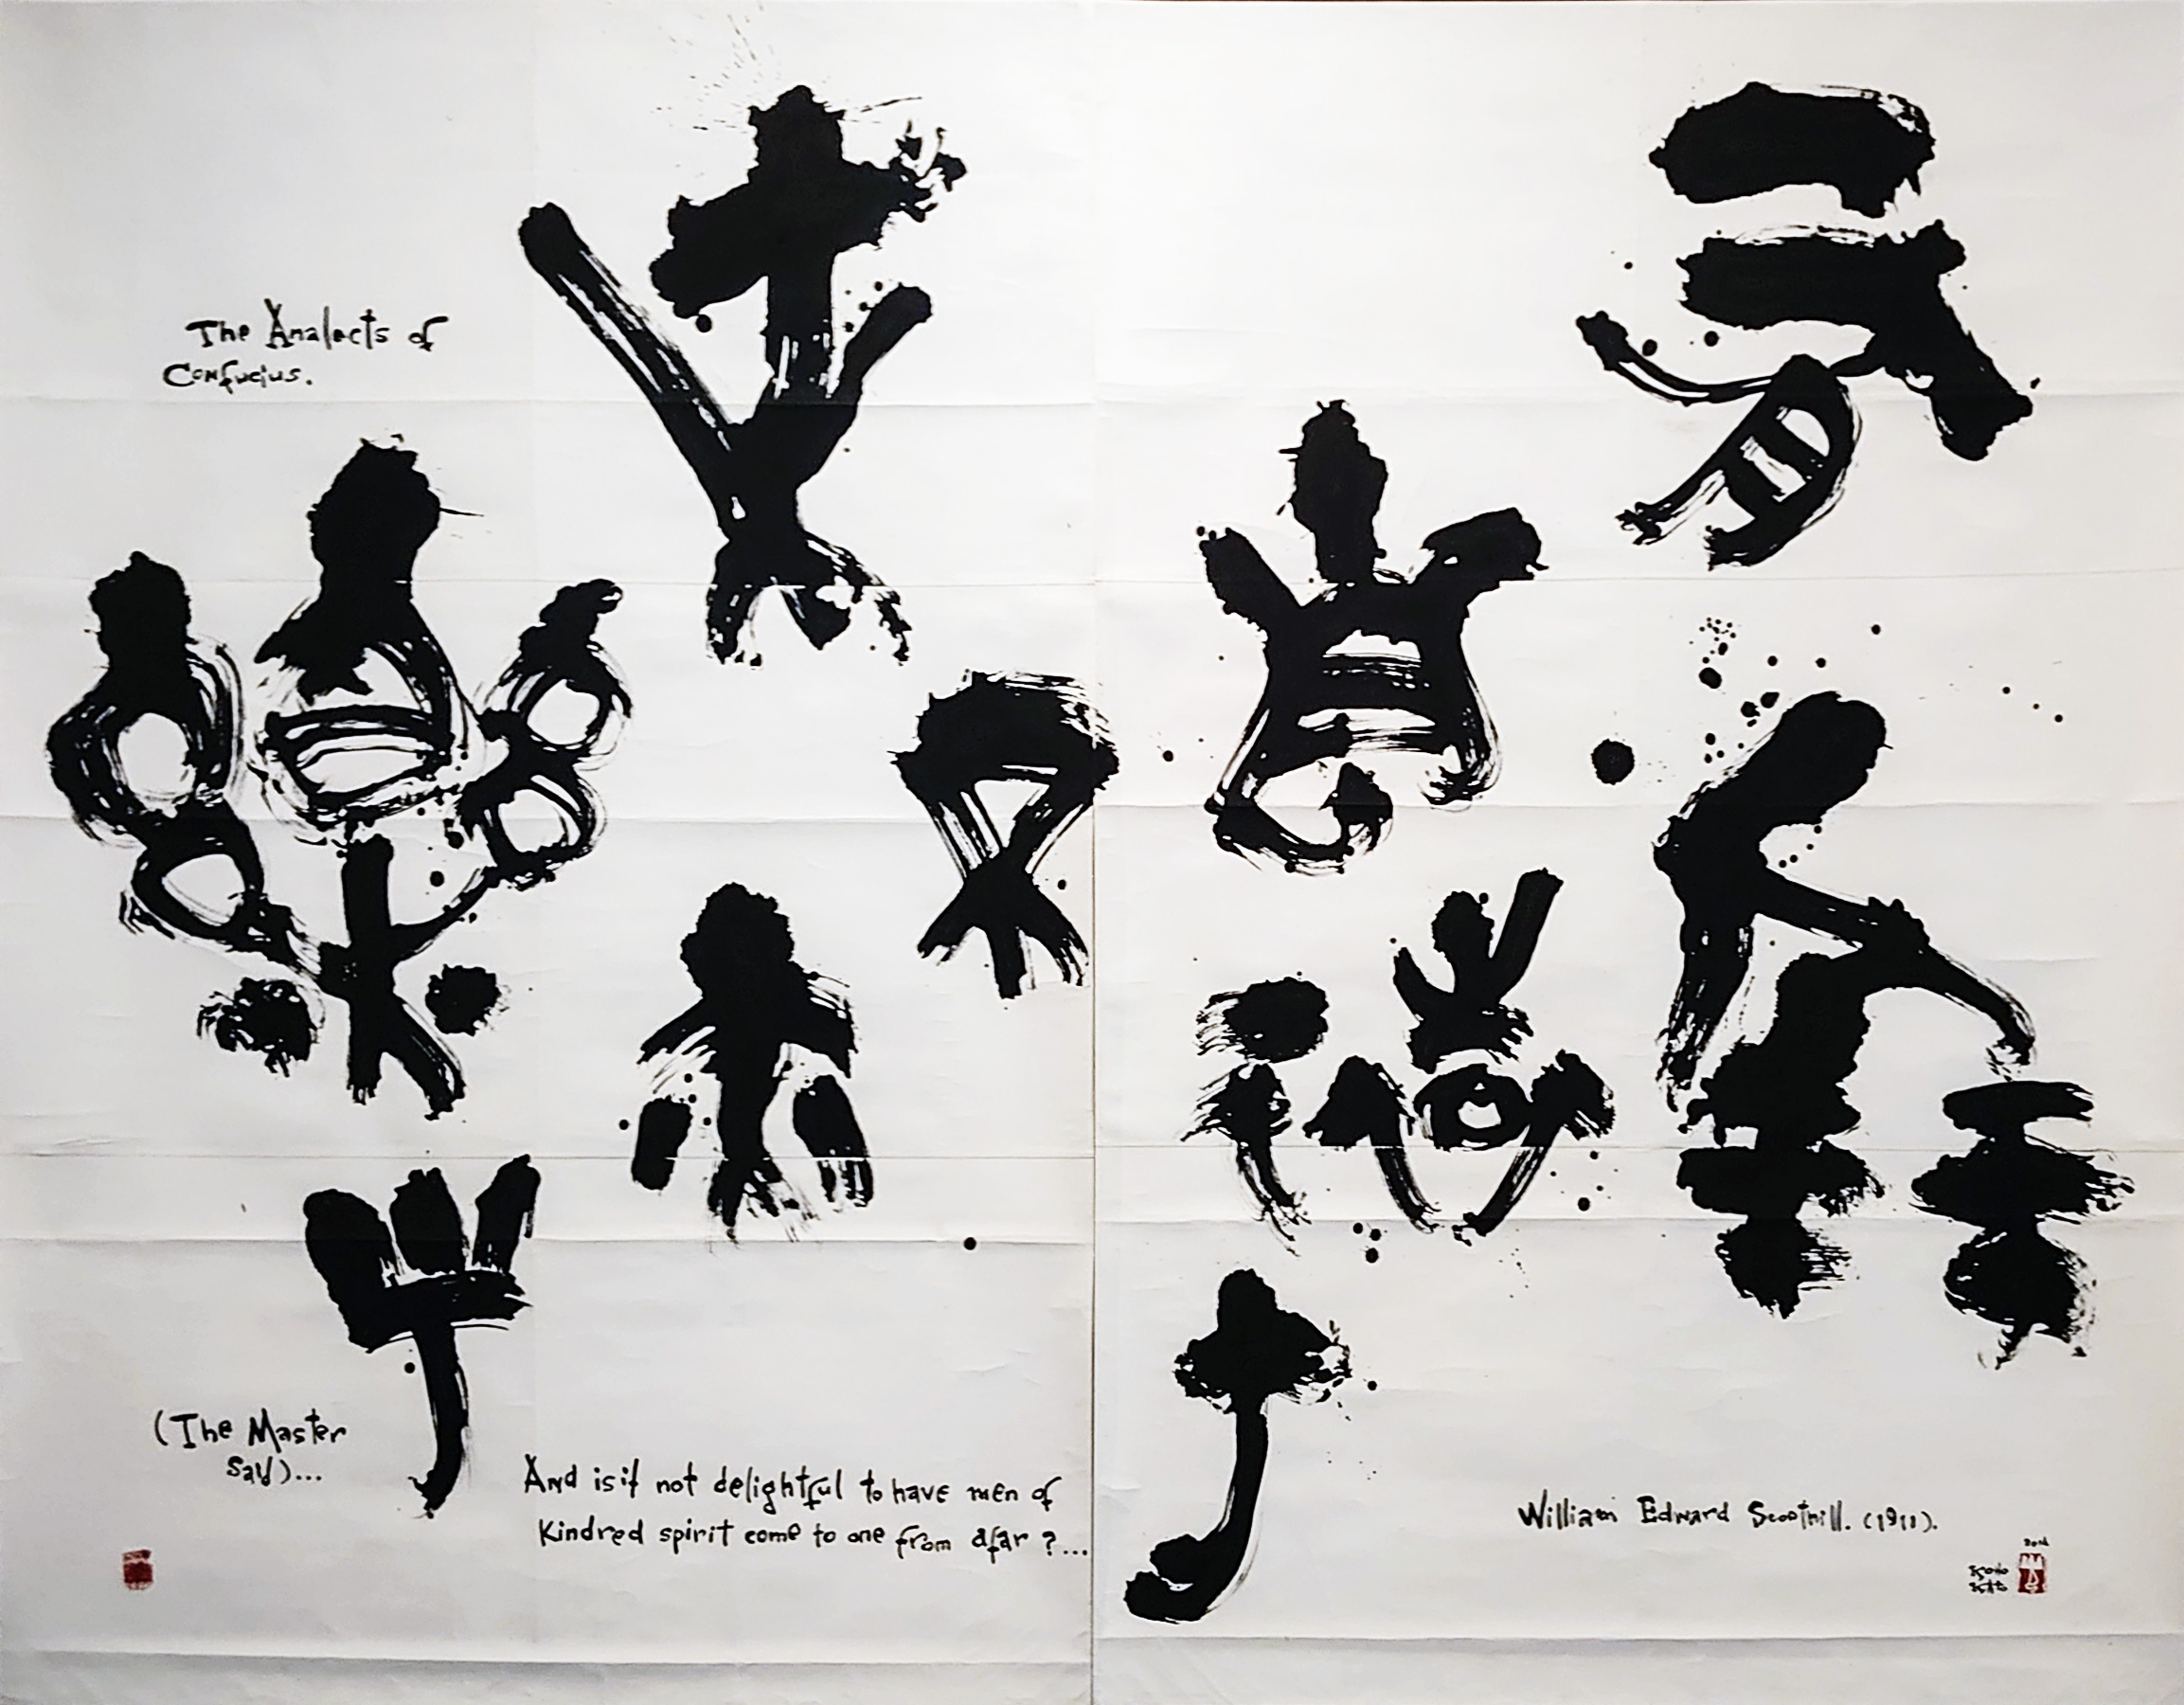 有朋
自遠方
來不亦
樂乎
The Analects of
Confucius.
(The Master
said)...
And is it not delightful to have men of
Kindred spirit come to one from afar ?...
William Edward Soothill. (1911).